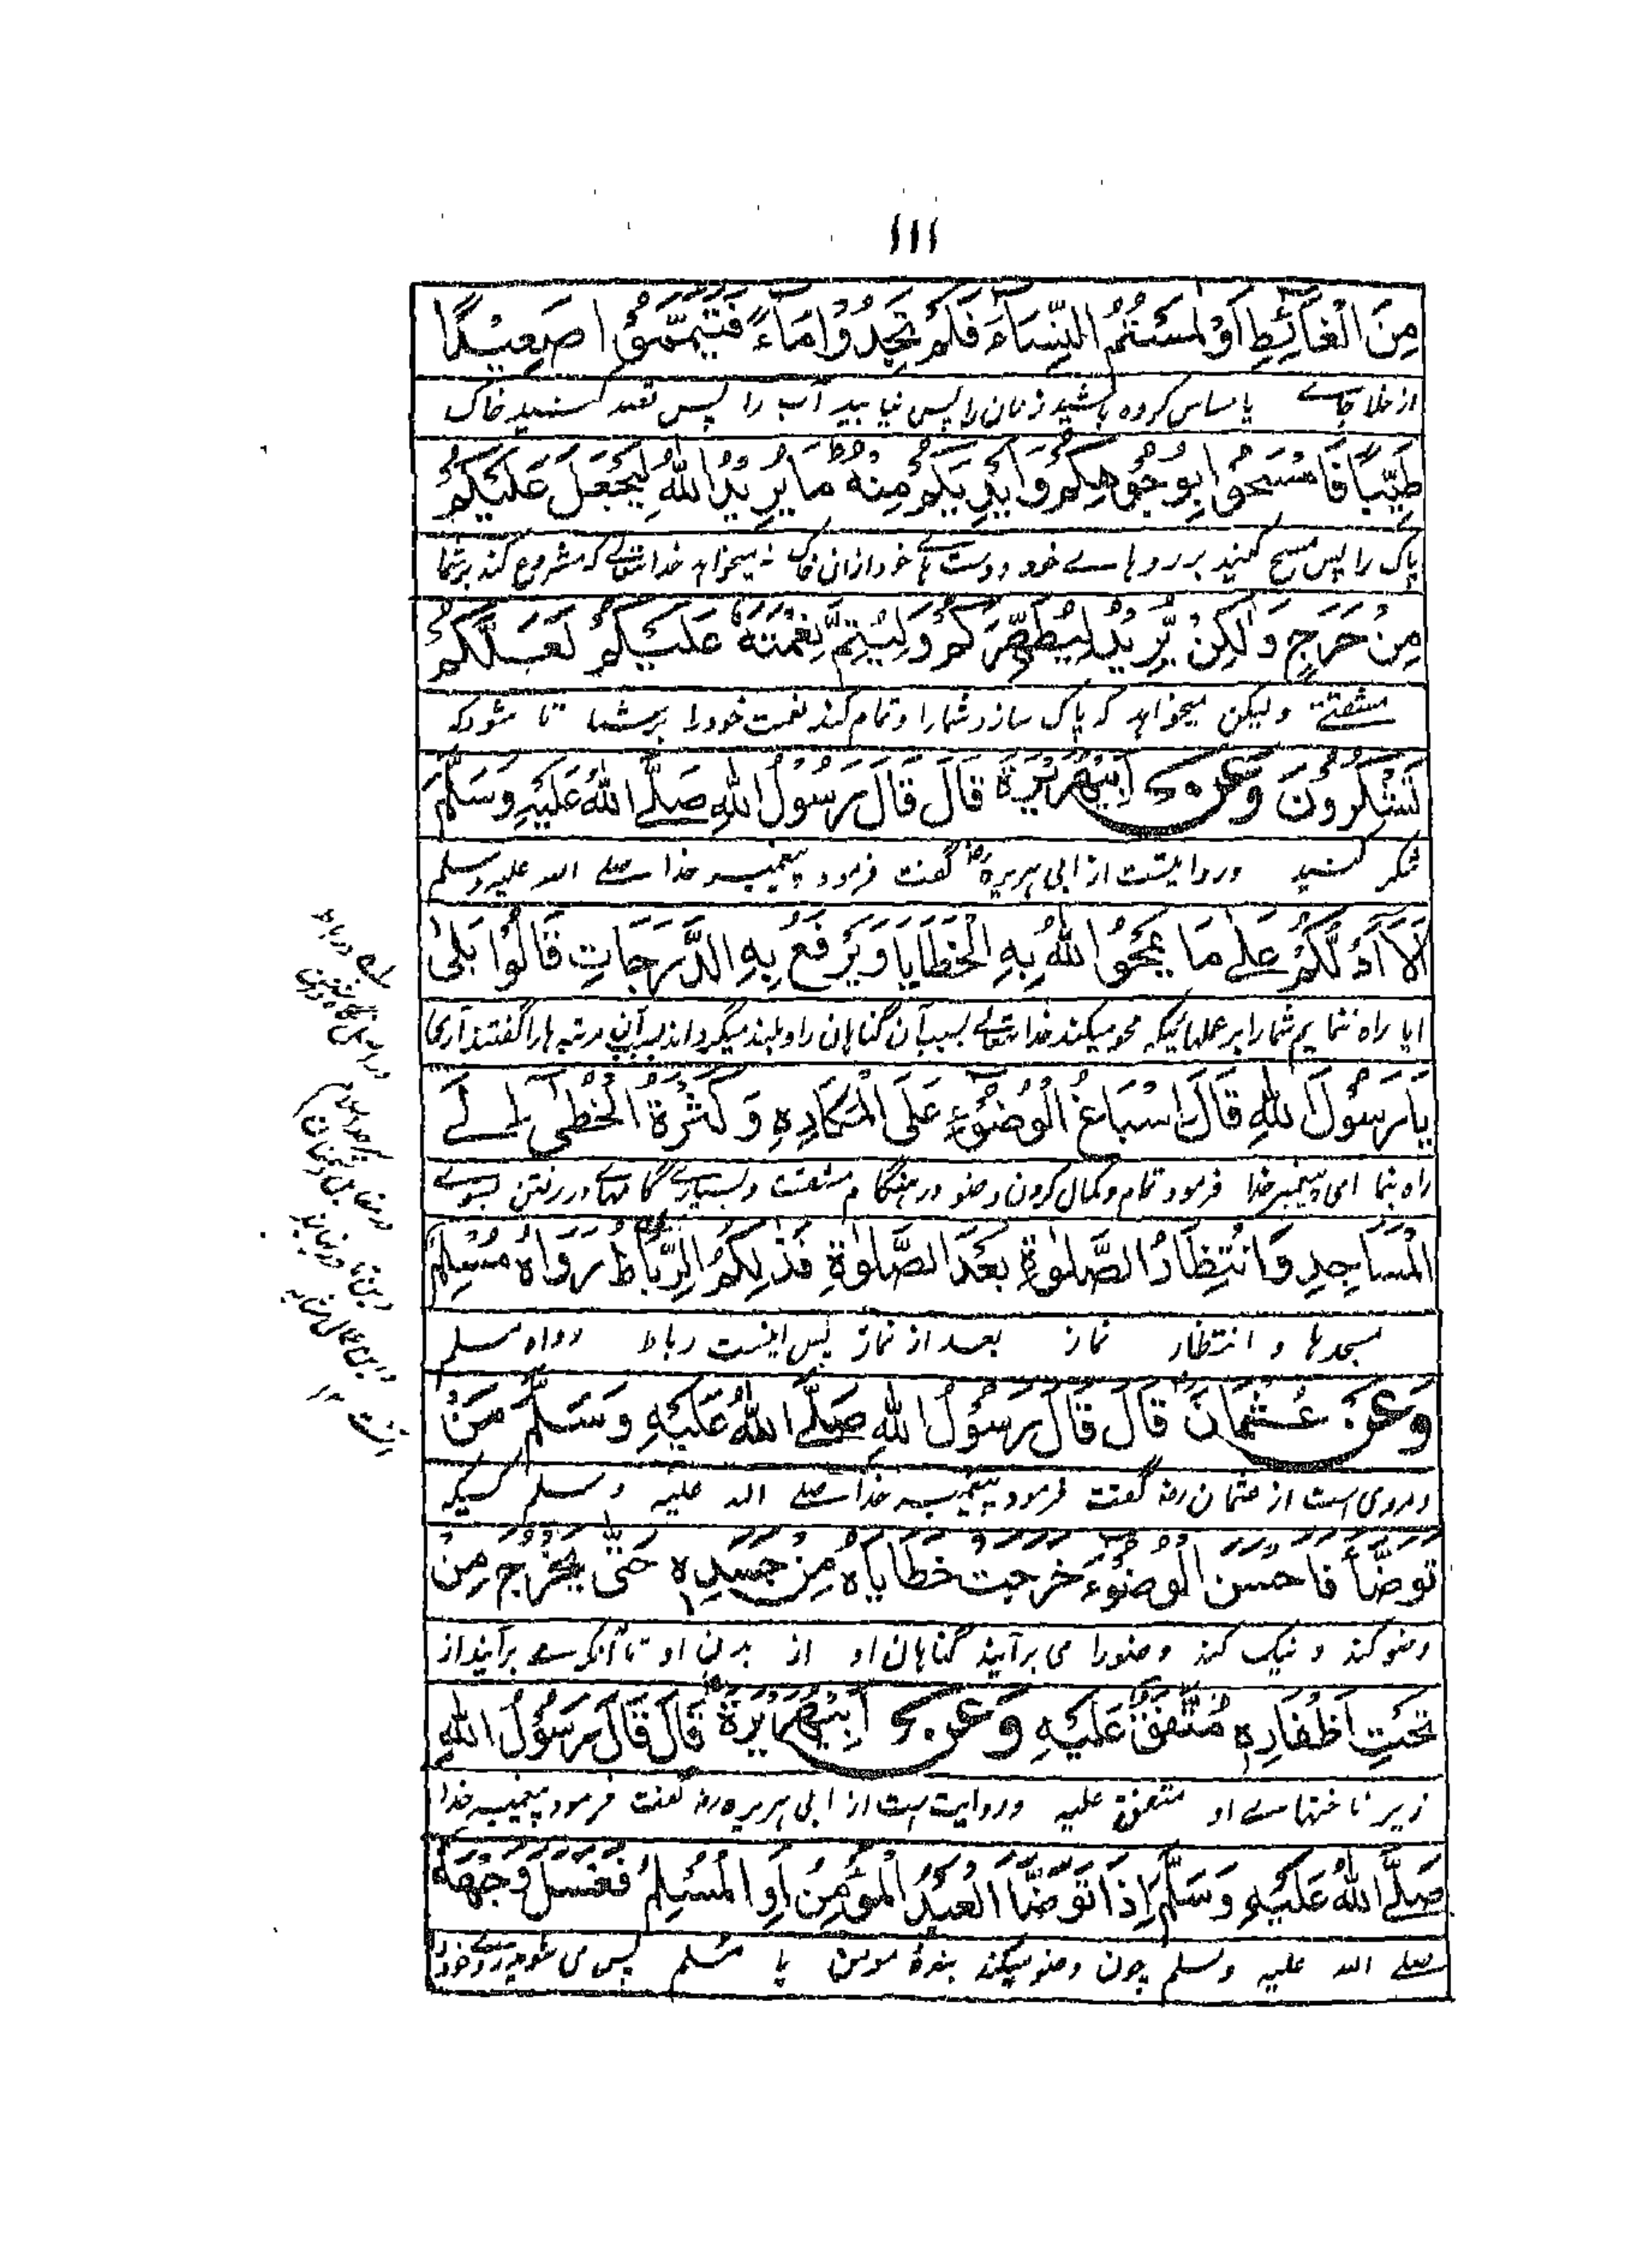 ۱۱۱
مِنَ الْغَآئِطِ اَوْ لٰمَسْتُمُ النِّسَآءَ فَلَمْ تَجِدُوْا مَآءً فَتَيَمَّمُوْا صَعِيْدًا
از خلا جاے یا مساس کرده باشید زنان را پس نیابید آب را پس قصد کنید خاک
طَيِّبًا فَامْسَحُوْا بِوُجُوْهِكُمْ وَاَيْدِيَكُمْ مِنْهُ مَا يُرِيْدُ اللّٰهُ لِيَجْعَلَ عَلَيْكُمْ
پاک را پس مسح کنید بر روہاے خود و دست ہاے خود از ان خاک نمیخواہد خداتعالے کہ مشروع کند بر شما
مِنْ حَرَجٍ وَلٰكِنْ يُّرِيْدُ لِيُطَهِّرَكُمْ وَلِيُتِمَّ نِعْمَتَهٗ عَلَيْكُمْ لَعَلَّكُمْ
مشقتے ولیکن میخواہد کہ پاک سازد شمارا و تمام کند نعمت خود را بر شما تا شود کہ
تَشْكُرُوْنَ وَعَنْ اَبِيْ هُرَيْرَةَ قَالَ قَالَ رَسُوْلُ اللّٰهِ صَلَّے اللّٰهُ عَلَيْهِ وَسَلَّمَ
شکر کنید و روایتست از ابی ہریرہ رض گفت فرمود پیغمبر خدا صلے اللہ علیہ وسلم
اَلَآ اَدُلُّكُمْ عَلٰے مَا يَمْحُوا اللّٰهُ بِهِ الْخَطَايَا وَيَرْفَعُ بِهِ الدَّرَجَاتِ قَالُوْا بَلٰى
ایا راہ ننمایم شمارا بر عملہائیکہ محو میکند خداتعالے بسبب آن گناہان را و بلند میگرداند بسبب آن مرتبہ ہا را گفتند آری
يَا رَسُوْلَ اللّٰهِ قَالَ اِسْبَاغُ الْوُضُوْءِ عَلَى الْمَكَارِهِ وَكَثْرَةُ الْخُطٰى اِلَے
راہ نما ای پیغمبر خدا فرمود تمام و کمال کردن وضو در ہنگام مشقت و بسیارے گامہا در رفتن بسوے
الْمَسَاجِدِ وَانْتِظَارُ الصَّلٰوةِ بَعْدَ الصَّلٰوةِ فَذٰلِكُمُ الرِّبَاطُ رَوَاهُ مُسْلِمٌ
مسجدہا و انتظار نماز بعد از نماز پس اینست رباط رواہ مسلم
وَعَنْ عُثْمَانَ قَالَ قَالَ رَسُوْلُ اللّٰهِ صَلَّے اللّٰهُ عَلَيْهِ وَسَلَّمَ مَنْ
و مروی است از عثمان رض گفت فرمود پیغمبر خدا صلے اللہ علیہ وسلم کسیکہ
تَوَضَّأَ فَاَحْسَنَ الْوُضُوْءَ خَرَجَتْ خَطَايَاهُ مِنْ جَسَدِهٖ حَتّٰى يَخْرُجَ مِنْ
وضو کند و نیک کند وضو را می برآیند گناہان او از بدن او تا آنکہ برآیند از
تَحْتِ اَظْفَارِهٖ مُتَّفَقٌ عَلَيْهِ وَعَنْ اَبِيْ هُرَيْرَةَ قَالَ قَالَ رَسُوْلُ اللّٰهِ
زیر ناخنہاے او متفق علیہ و روایت است از ابی ہریرہ رض گفت فرمود پیغمبر خدا
صَلَّے اللّٰهُ عَلَيْهِ وَسَلَّمَ اِذَا تَوَضَّأَ الْعَبْدُ الْمُؤْمِنُ اَوِ الْمُسْلِمُ فَغَسَلَ وَجْهَهٗ
صلے اللہ علیہ وسلم چون وضو میکند بندۂ مومن یا مسلم پس می شوید روے خود را